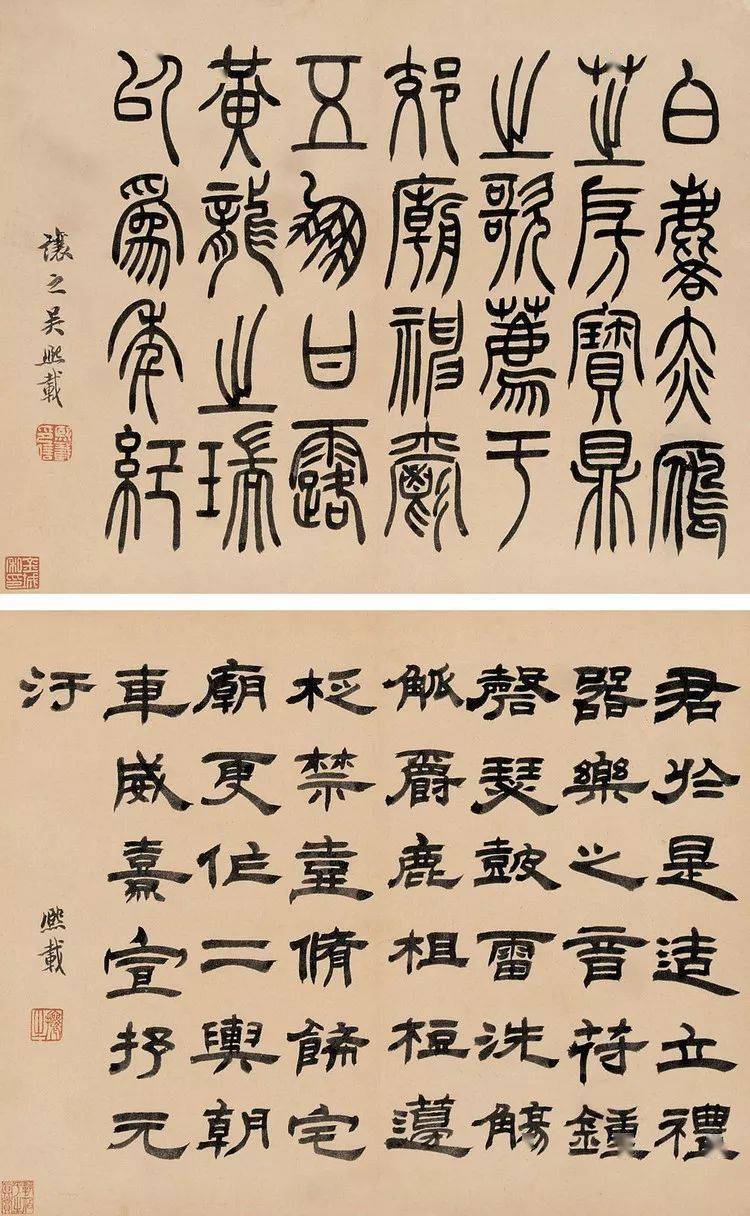 白麐赤鴈
芝房寶鼎
之歌薦于
郊廟神爵
五鳳甘露
黃龍之瑞
以為年紀
讓之吳熙載
君於是造立禮
器樂之音符鍾
磬瑟鼓雷洗觴
觚爵鹿柤梪籩
柉禁壺脩飾宅
廟更作二輿朝
車威熹宣抒元
汙
熙載